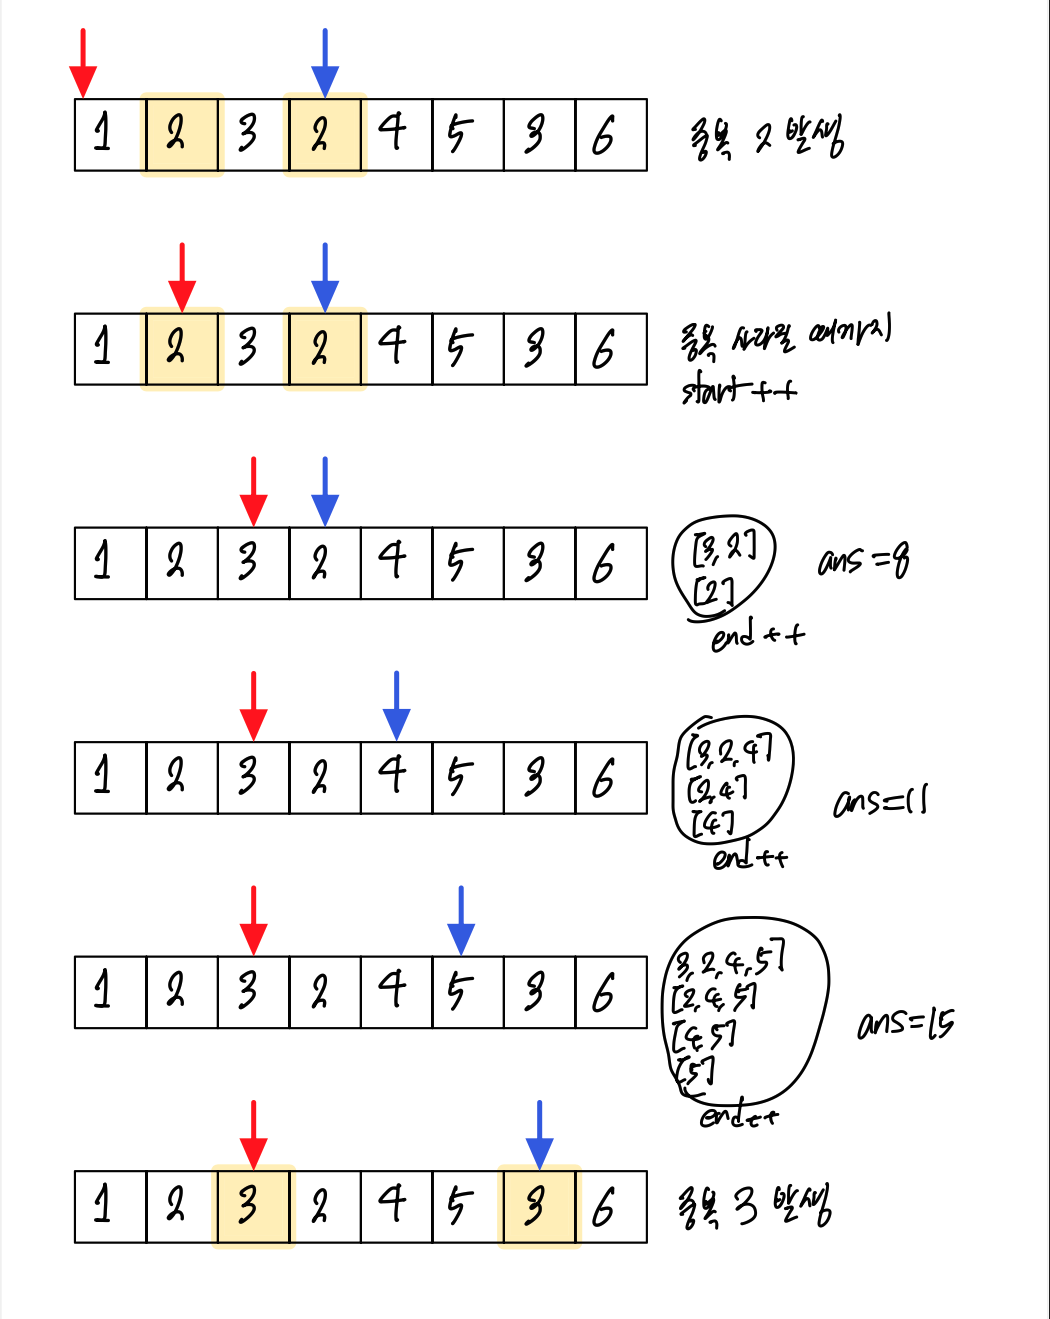 1 2 3 2 4 5 3 6
중복 2 발생
1 2 3 2 4 5 3 6
중복 사라질 때까지
start++
1 2 3 2 4 5 3 6
[3,2]
[2]
ans=8
end++
1 2 3 2 4 5 3 6
[3,2,4]
[2,4]
[4]
ans=11
end++
1 2 3 2 4 5 3 6
3,2,4,5]
[2,4,5]
[4,5]
[5]
ans=15
end++
1 2 3 2 4 5 3 6
중복 3 발생